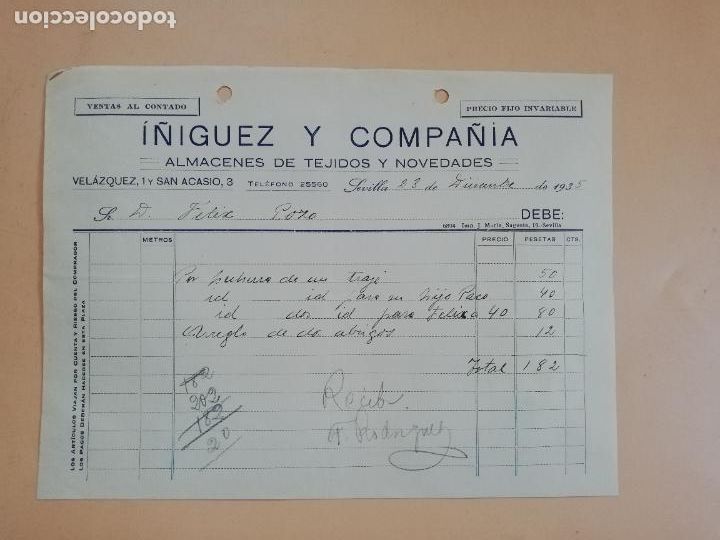 todocoleccion
VENTAS AL CONTADO
PRECIO FIJO INVARIABLE
ÍÑIGUEZ Y COMPAÑÍA
ALMACENES DE TEJIDOS Y NOVEDADES
VELÁZQUEZ, 1 Y SAN ACASIO, 3 TELÉFONO 25560 Sevilla 23 de Diciembre de 1935
Sr. D. Félix Pozo DEBE:
6894 Imp. J. María, Sagasta, 19.-Sevilla
METROS PRECIO PESETAS CTS.
Por hechura de un traje 50
id id para su hijo Paco 40
id dos id para Félix a 40 80
Arreglo de dos abrigos 12
Total 182
182
202
182
20
Recibí
F. Rodríguez
LOS ARTÍCULOS VIAJAN POR CUENTA Y RIESGO DEL COMPRADOR
LOS PAGOS DEBERÁN HACERSE EN ESTA PLAZA